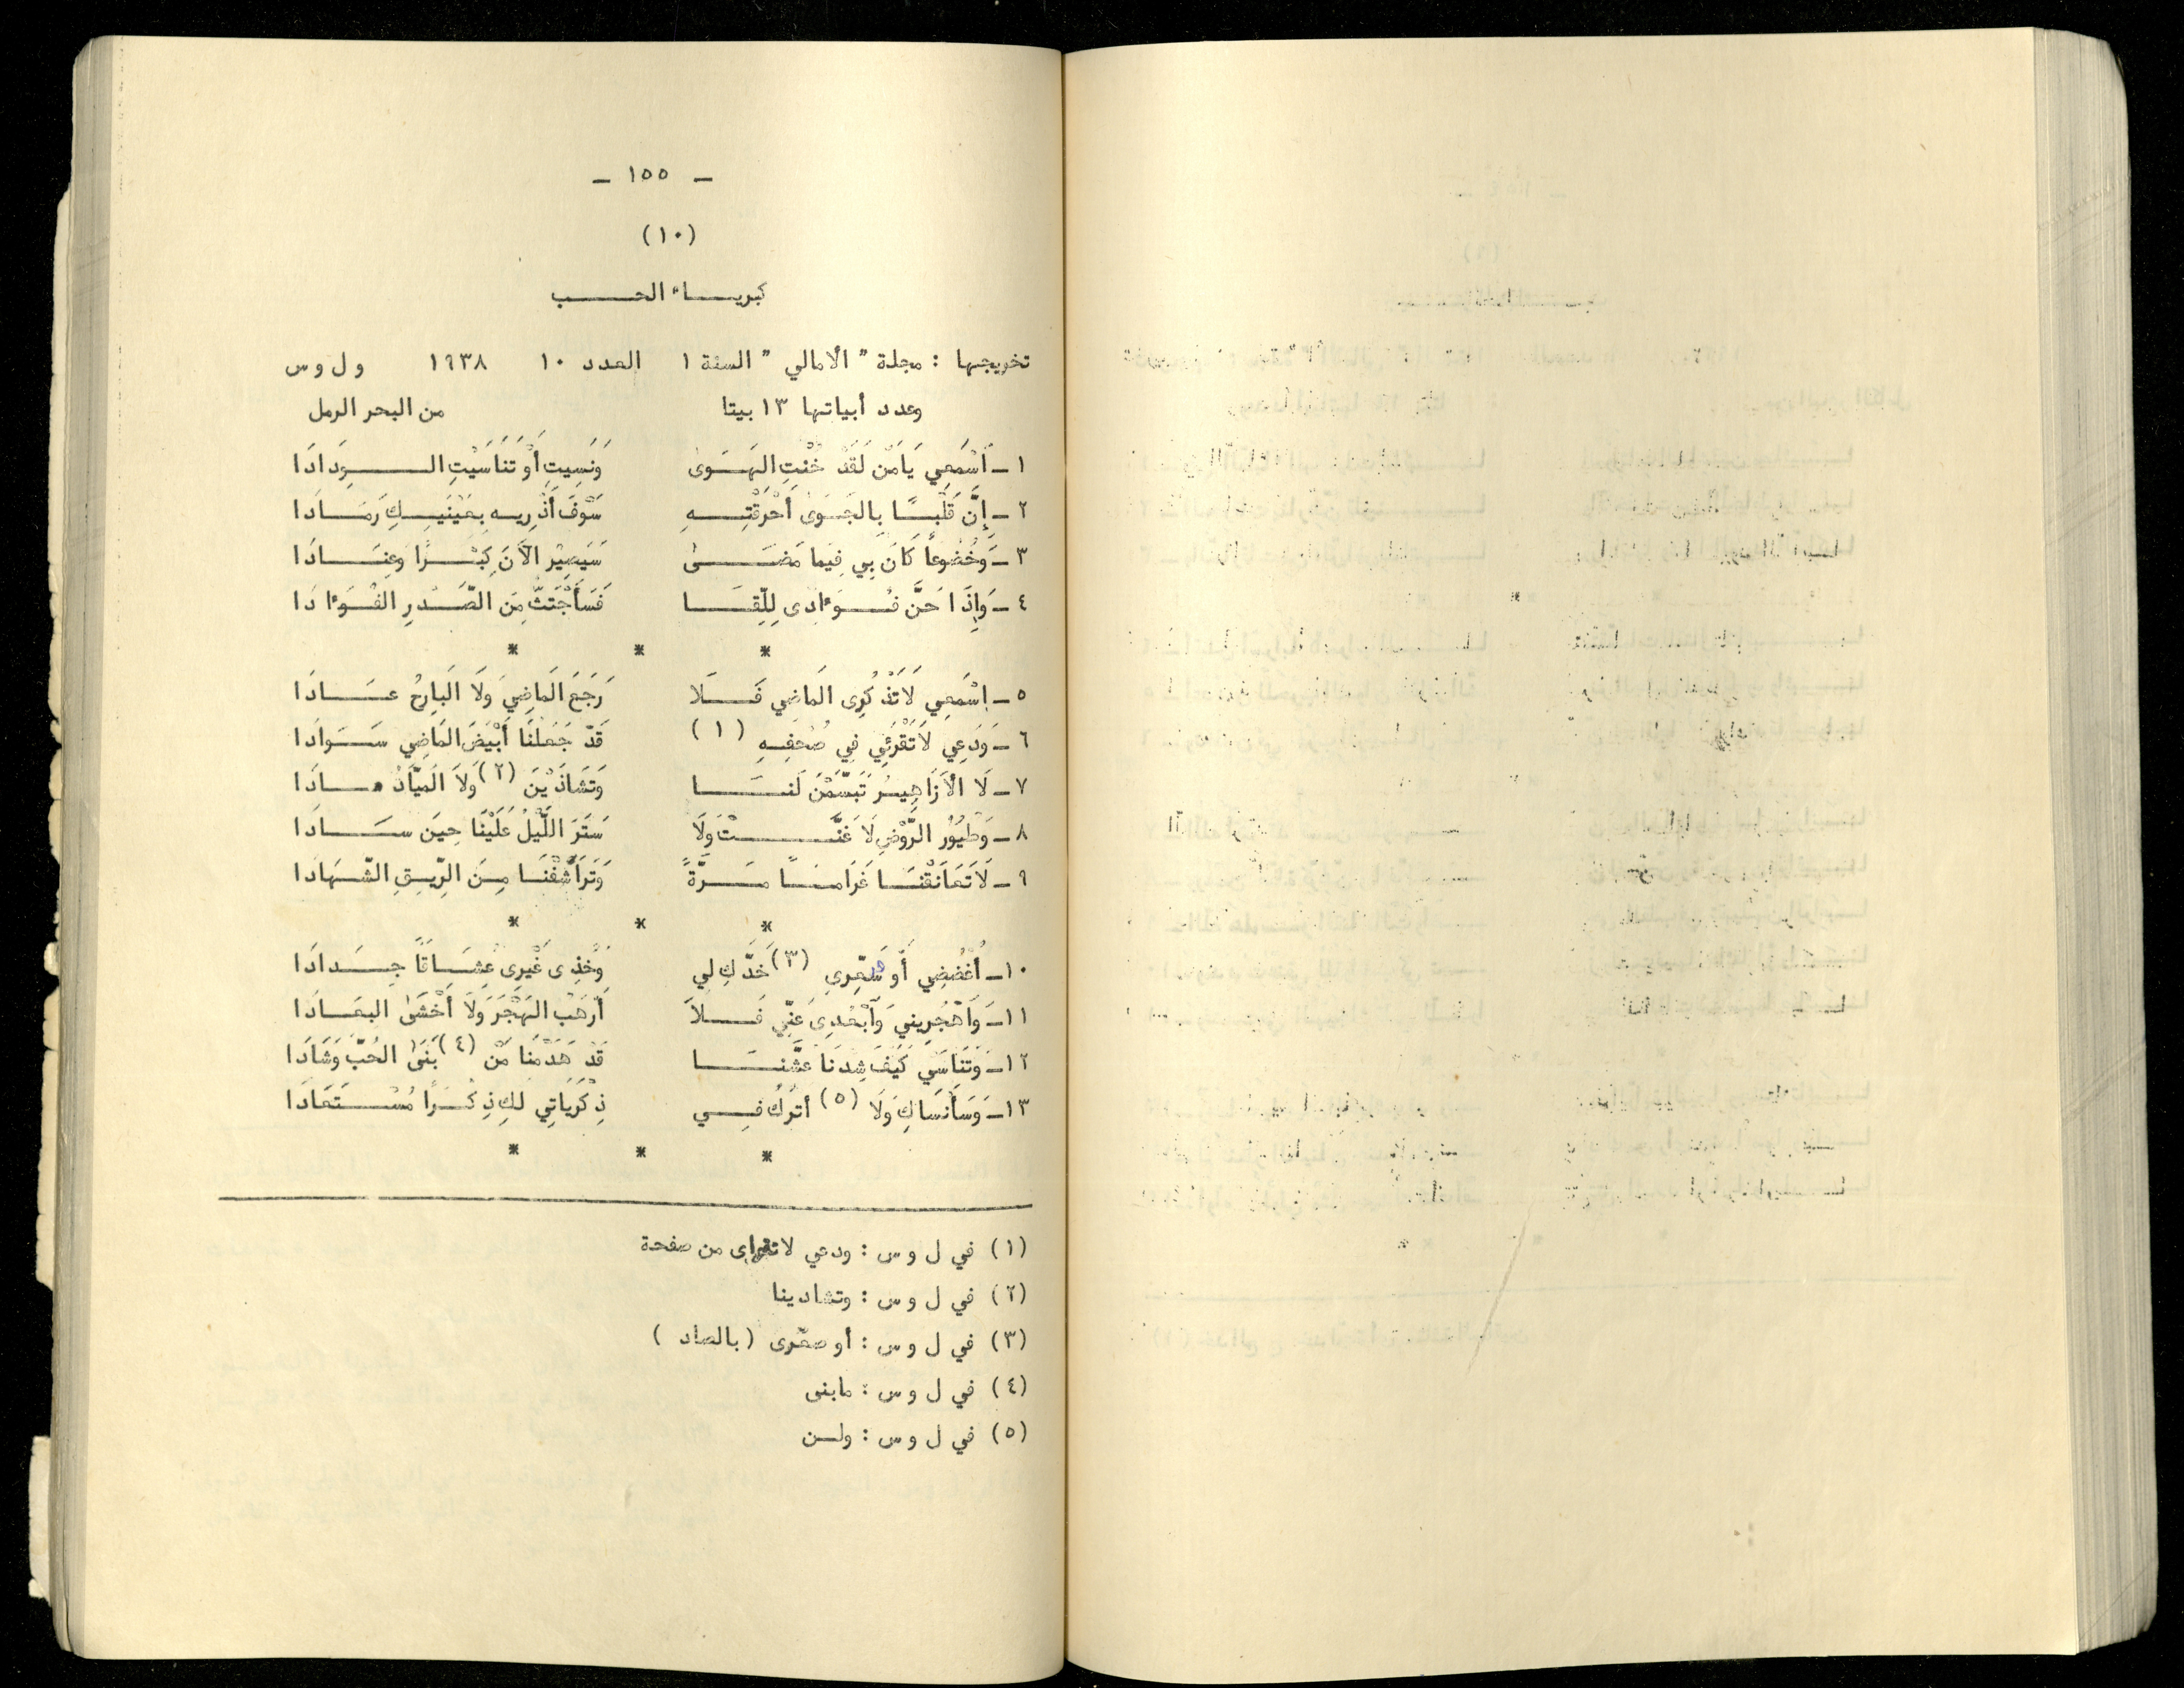 - ١٥٥ -
(١٠)
كبريـــاء الحـــب
تخريجها : مجلة " الأمالي " السنة ١ العدد ١٠ ١٩٣٨ و ل و س
وعدد أبياتها ١٣ بيتا من البحر الرمل
١ - اَسْمَعِي يَامَنْ لَقَدْ خُنْتِ الهَـوَىٰ وَنَسِيتِ أَوْ تَنَاسَيْتِ الـــوِدَادَا
٢ - إِنَّ قَلْبًـا بِالجَـوَىٰ أَحْرَقْتِـهِ سَوْفَ أَذْرِيـهِ بِعَيْنَيـكِ رَمَـادَا
٣ - وَخُضُوعاً كَانَ بِي فِيمَا مَضَـىٰ سَيَصِيْر الآنَ كِبْـرًا وعِنَـادَا
٤ - وَإِذَا حَنَّ فُـؤَادِى لِلِّقَـا فَسَأَجْتَثُّ مِنَ الصَّـدرِ الفُـؤَادَا
* * *
٥ - اِسْمَعِي لَاتَذْكُرِى المَاضِي فَـلَا رَجَعَ المَاضِيَ ولَا البَارِحُ عـادَا
٦ - وَدَعِي لاَتَقْرَئِي فِي صُحفِـهِ (١) قَدْ جَعَلْنَا أَبْيَضَ المَاضِي سَـوَادَا
٧ - لَا الأَزَاهِيـرُ تَبَسَّمْنَ لَنـا وَتَشَاذَيْنَ (٢) وَلاَ المَيَّادُ مـادَا
٨ - وَطُيُوُر الرَّوْضِ لَا غَنَّـتْ وَلَا سَتَرَ اللَّيْلُ عَلَيْنَا حِيَن سَـادَا
٩ - لَا تَعَانَقْنَـا غَرَامـًا مَـرَّةً وَتَرَاشَفْنَـا مِـنَ الرِّيـقِ الشَّـهَادَا
* * *
١٠ - اُغْضُضِي أَو سَعِّرِي (٣) خَدَّكِ لِي وَخُذِى غَيْرِى عُشَـاقًا جِـدَادَا
١١ - وَاَهْجُرِيني وَاَبْعُدِى عَنِّي فَـلاَ أَرْهَبُ الهَجْرَ وَلاَ أَخْشَىٰ البعَـادَا
١٢ - وَتَنَاسَي كَيَفَ شِدنَا عشَّنـا قَدْ هَدَمْنَا مَنْ (٤) بَنَىٰ الحُبَّ وَشَادَا
١٣ - وَسَأَنسَاكِ وَلَا (٥) أترُكُ فِـي ذِكْرَيَاتِي لكِ ذِكْـرًا مُسْـتَعَادَا
* * *
(١) في ل و س : ودعي لاتقراى من صفحة
(٢) في ل و س : وتشادينا
(٣) في ل و س : أو صعّرى ( بالصاد )
(٤) في ل و س : مابنى
(٥) في ل و س : ولـن